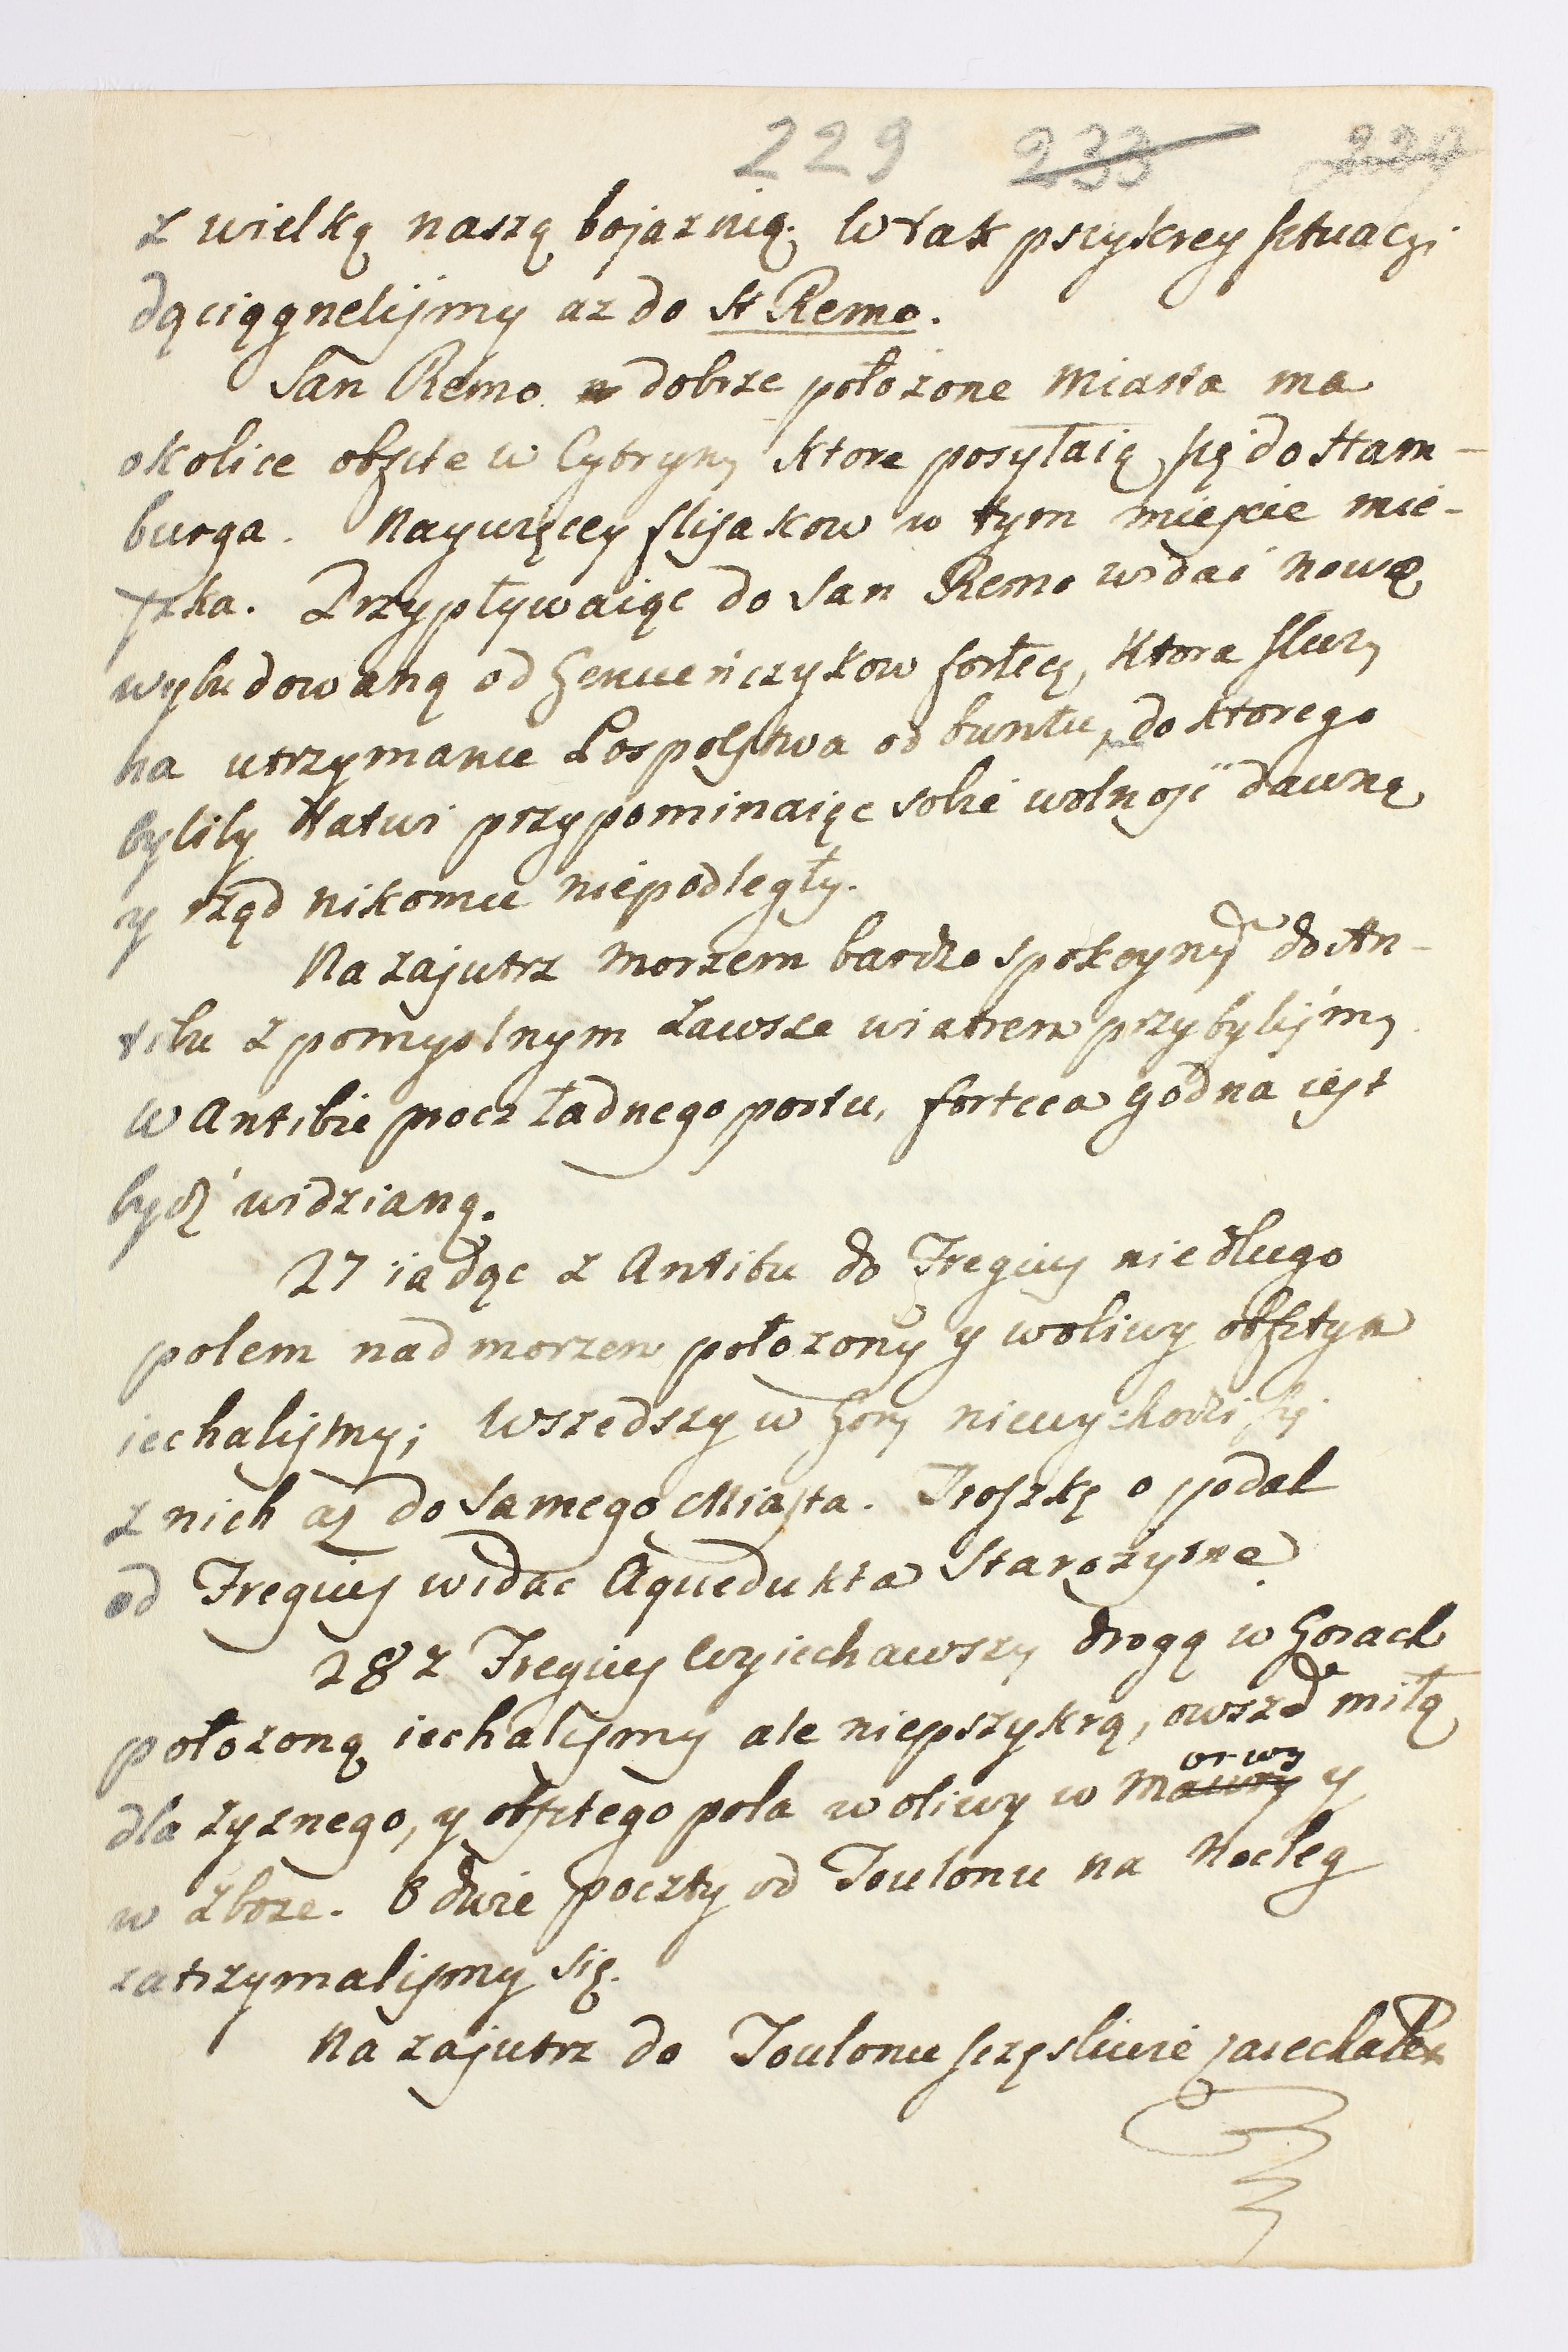 229 233 227
z wielką naszą bojaznią. W tak pszykrey sytuaczi
dąciągnelismy az do St Remo.
San Remo dobrze położone miasta ma
okolice obfite w Cytryny które posyłaią się do Ham-
burga. Naywięcey flisakow w tym miescie mie-
szka. Przypływaiąc do San Remo widać nową
wybudowaną od Genueńczykow fortecę, ktora służy
na utrzymanie Pospolstwa od buntu, do ktorego
byliby łatwi przypominaiąc sobie wolność dawną
y rżąd nikomu niepodległy.
Nazajutrz morzem bardzo spokoyny do An-
tibu z pomyslnym zawsze wiatrem przybylismy
W Antibie procz ładnego portu, forteca godna iest
bydź widzianą.
27 iadąc z Antibu do Fregius niedlugo
polem nad morzem położony y w oliwy obfitym
iechalismy; Wszedszy w Gory niewychodzi się
z nich aż do Samego Miasta. Troszkę opodal
od Fregius widac Aquedukta Starożytne
28 z Fregius Wyiechawszy drogą w Gorach
położoną iechalismy ale niepszykrą, owszẽ miłą
dla zyznego, y obfitego pola w oliwy w Mawry orwy y
w zboze. O dwie poczty od Toulonu na Nocleg
zatrzymalismy się.
Nazajutrz do Toulonu szczęsliwie zaiechałem